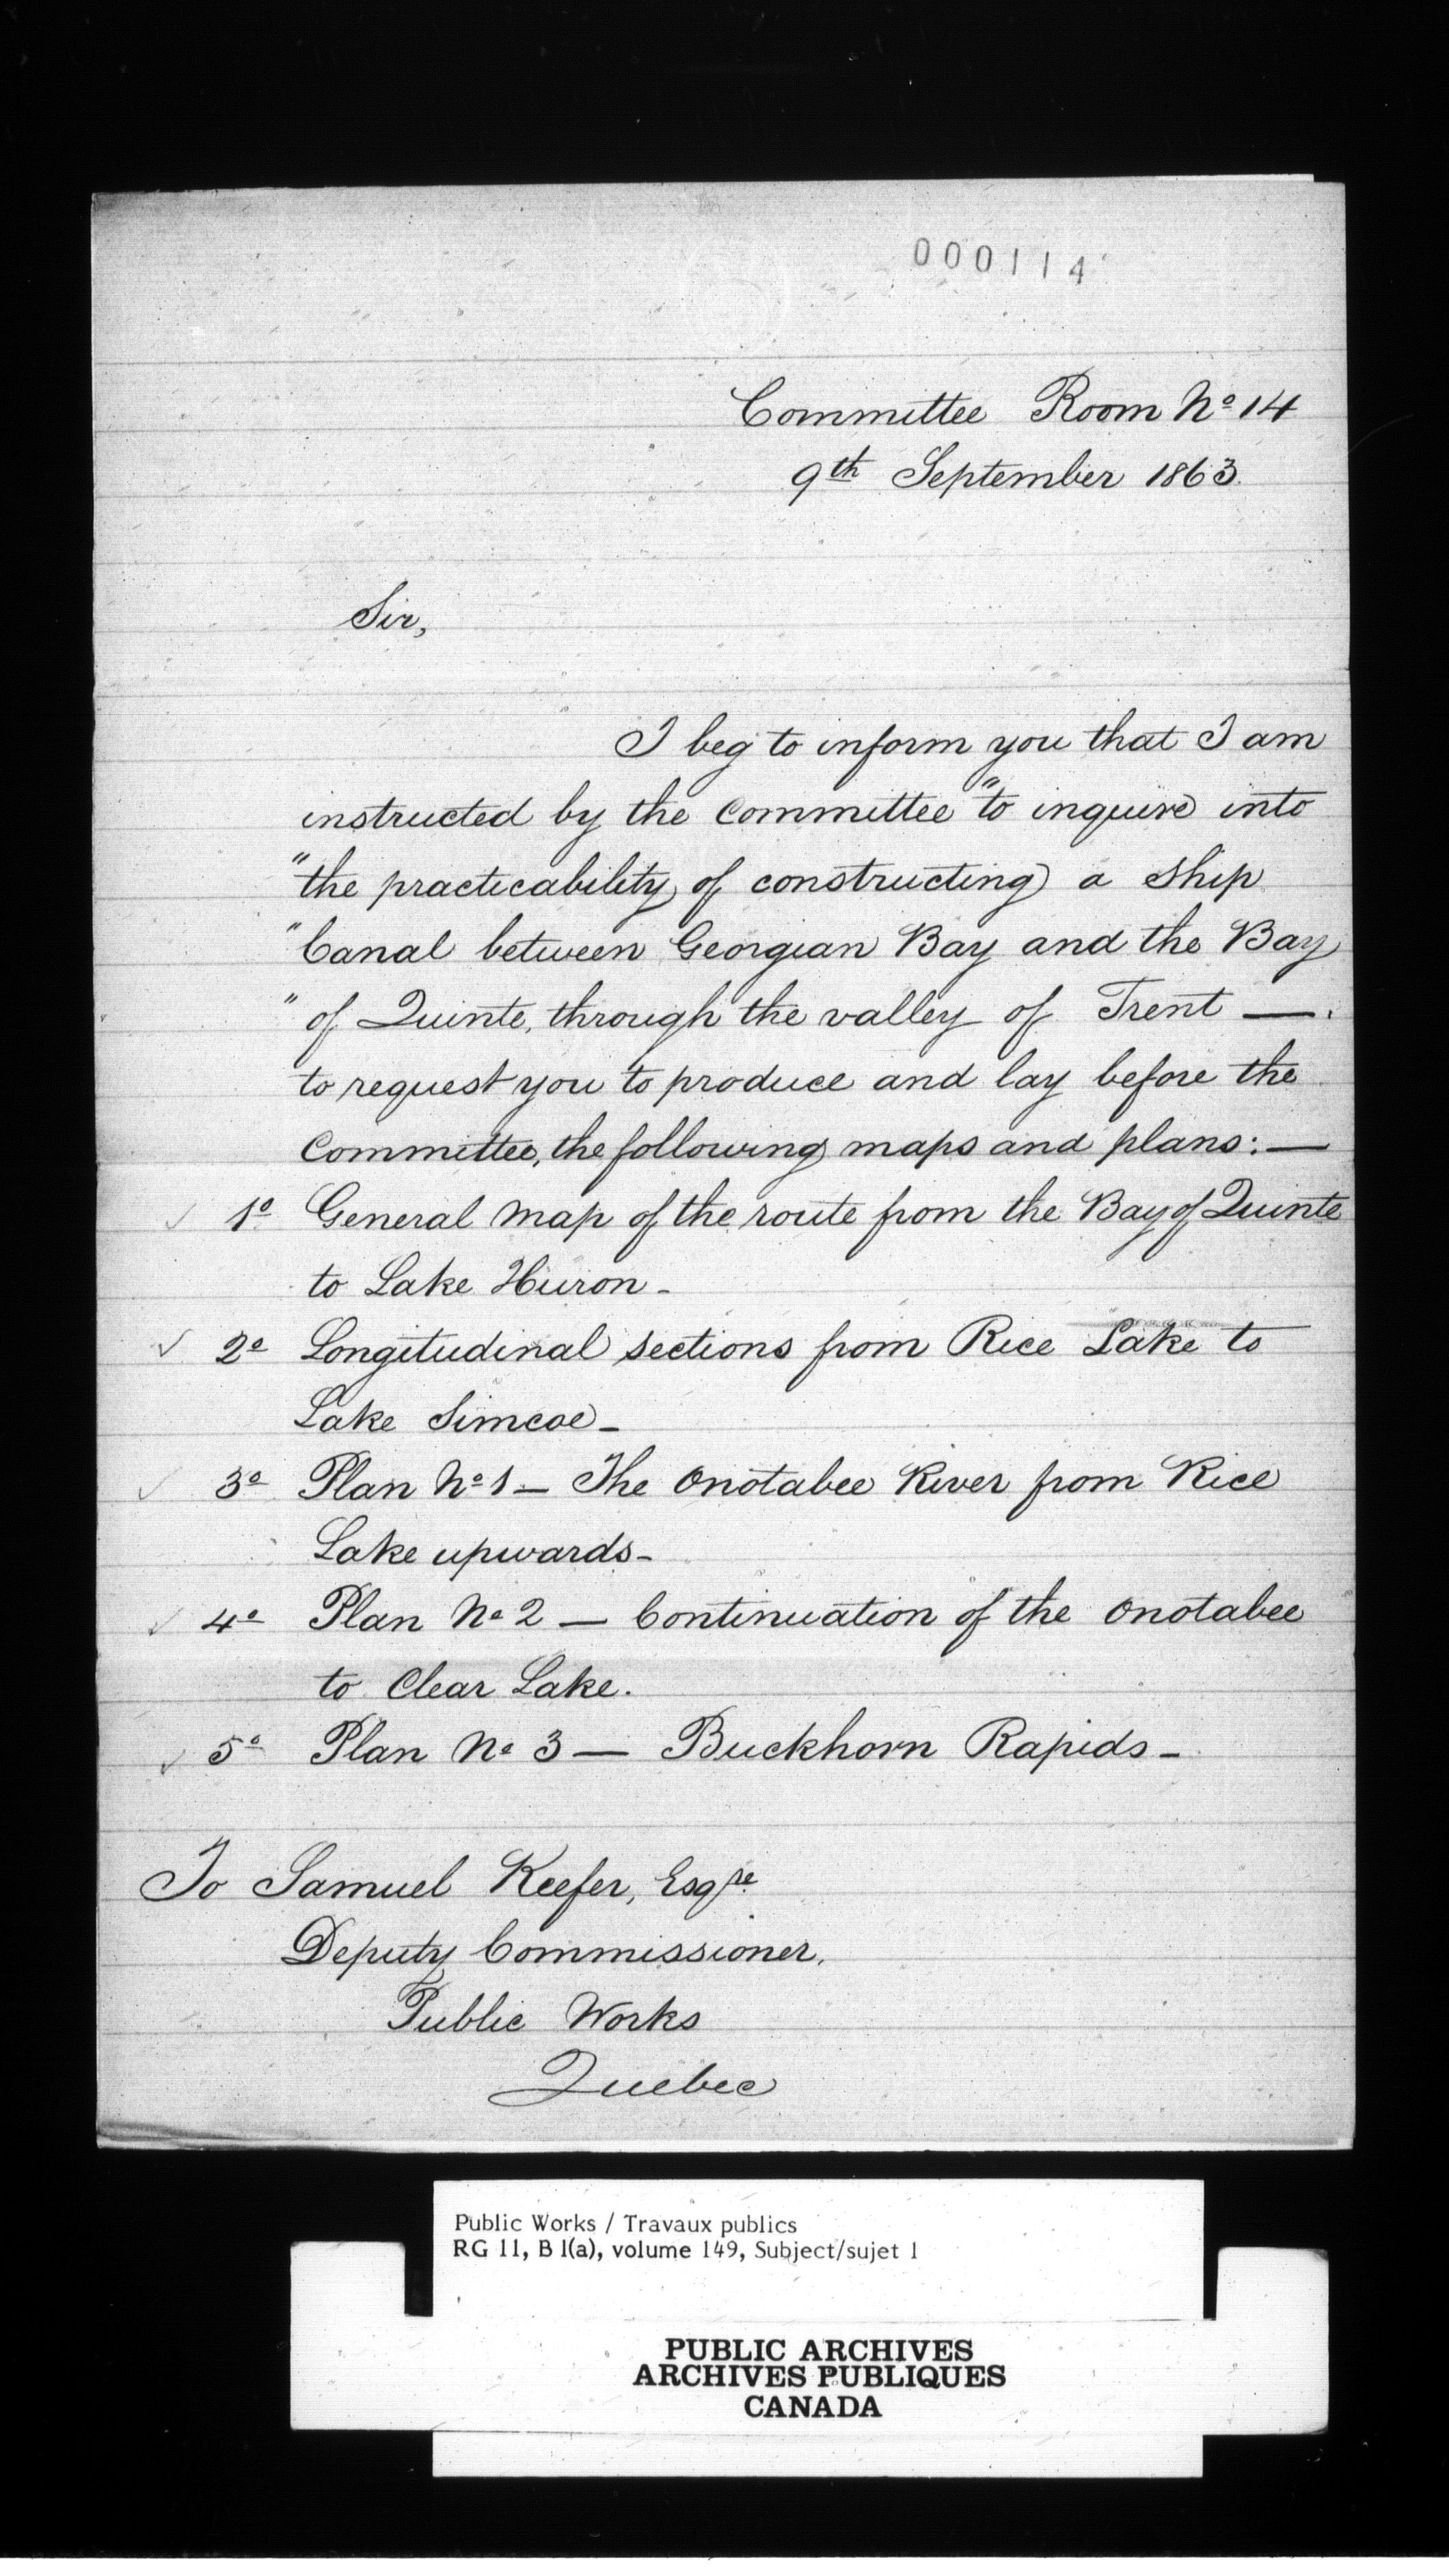 000114
Committee Room Nº 14
9th September 1863.
Sir,
I beg to inform you that I am
instructed by the Committee "to inquire into
"the practicability of constructing a Ship
"Canal between Georgian Bay and the Bay
" of Quinte, through the valley of Trent —
to request you to produce and lay before the
Committee, the following maps and plans: —
✓ 1º General Map of the route from the Bay of Quinte
to Lake Huron -
✓ 2º Longitudinal sections from Rice Lake to
Lake Simcoe -
✓ 3º Plan Nº 1 - The Onotabee River from Rice
Lake upwards -
✓ 4º Plan Nº 2 — Continuation of the Onotabee
to Clear Lake.
✓ 5º Plan Nº 3 — Buckhorn Rapids -
To Samuel Keefer, Esqre.
Deputy Commissioner,
Public Works
Quebec
Public Works / Travaux publics
RG 11, B 1(a), volume 149, Subject/sujet 1
PUBLIC ARCHIVES
ARCHIVES PUBLIQUES
CANADA